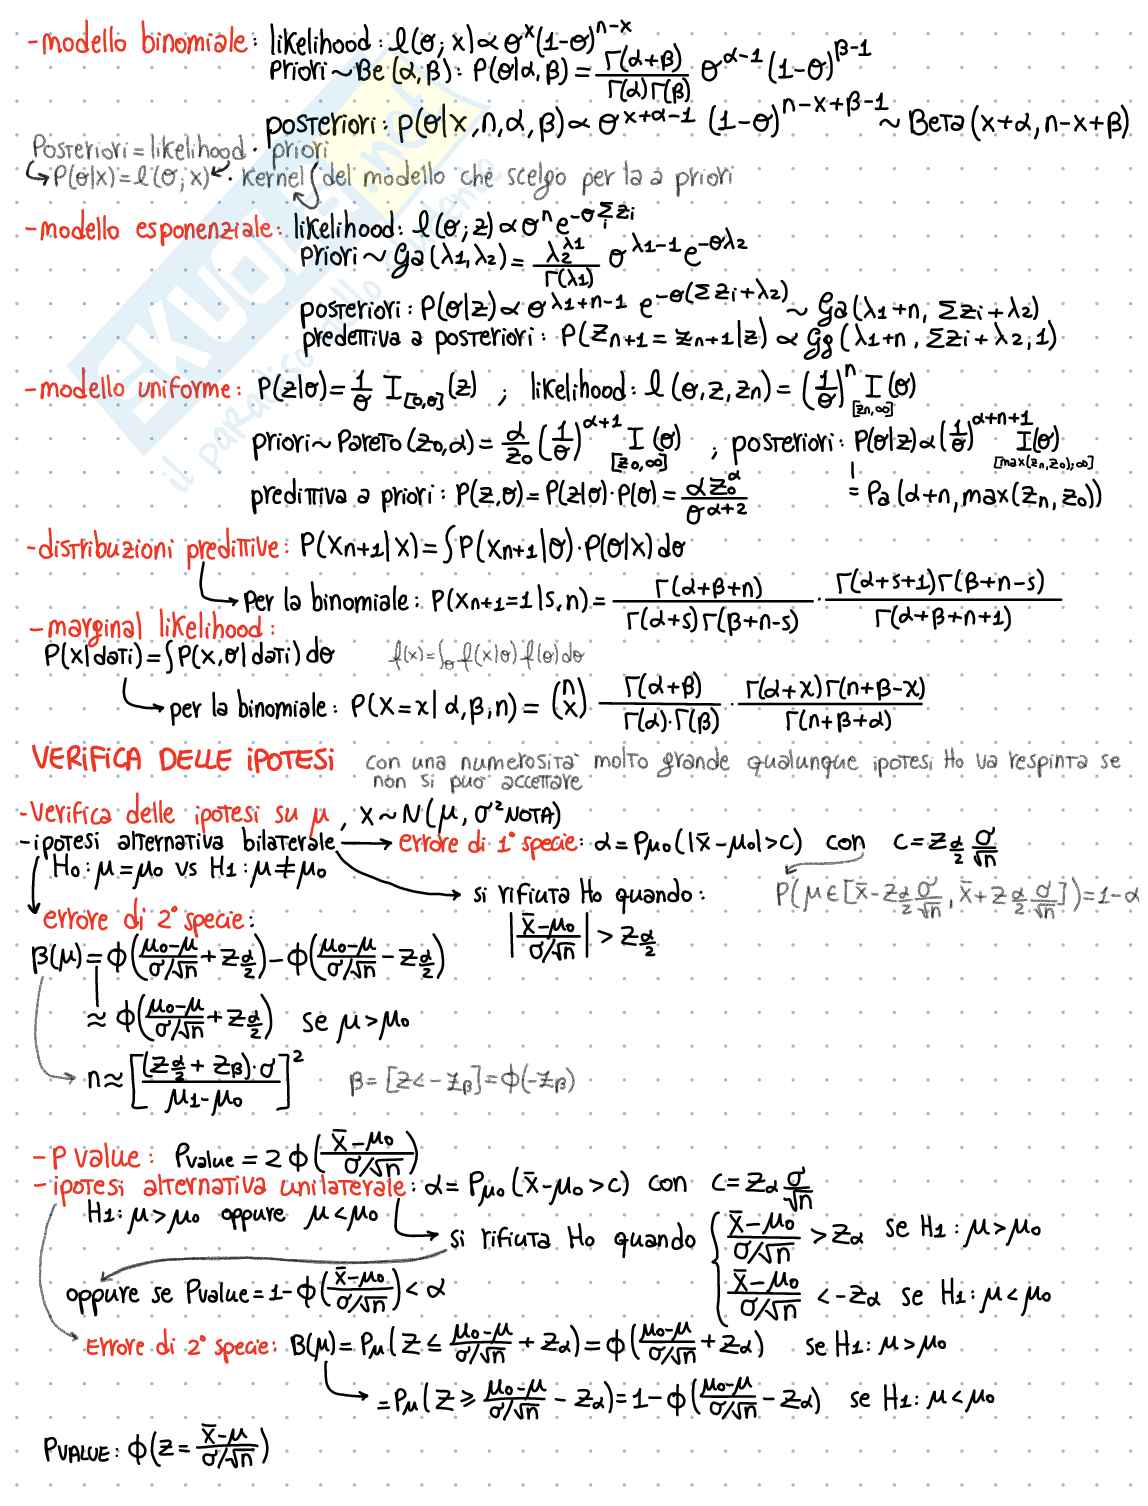 -modello binomiale: likelihood: l(θ; x) ∝ θ^x (1-θ)^{n-x}
Priori ~ Be(α, β): P(θ|α, β) = Γ(α+β)/(Γ(α)Γ(β)) θ^{α-1} (1-θ)^{β-1}
posteriori: P(θ|x, n, α, β) ∝ θ^{x+α-1} (1-θ)^{n-x+β-1} ~ Beta(x+α, n-x+β)
Posteriori = likelihood · priori
→ P(θ|x) = l(θ; x) · Kernel del modello che scelgo per la a priori
-modello esponenziale: likelihood: l(θ; z) ∝ θ^n e^{-θ Σ_i zi}
Priori ~ Ga(λ1, λ2) = λ2^{λ1}/Γ(λ1) θ^{λ1-1} e^{-θλ2}
posteriori: P(θ|z) ∝ θ^{λ1+n-1} e^{-θ(Σzi+λ2)} ~ Ga(λ1+n, Σzi+λ2)
predettiva a posteriori: P(Zn+1 = zn+1|z) ∝ Gg(λ1+n, Σzi+λ2, 1)
-modello uniforme: P(z|θ) = 1/θ I_{[0,θ]}(z) ; likelihood: l(θ, z, zn) = (1/θ)^n I_{[zn,∞]}(θ)
priori ~ Pareto(z0, α) = α/z0 (1/θ)^{α+1} I_{[z0,∞]}(θ) ; posteriori: P(θ|z) ∝ (1/θ)^{α+n+1} I_{[max(zn,z0);∞]}(θ)
predittiva a priori: P(z, θ) = P(z|θ) · P(θ) = αz0^α/θ^{α+2} = Pa(α+n, max(zn, z0))
-distribuzioni predittive: P(Xn+1|x) = ∫P(Xn+1|θ)·P(θ|x)dθ
→ Per la binomiale: P(Xn+1=1|s, n) = Γ(α+β+n)/(Γ(α+s)Γ(β+n-s)) · Γ(α+s+1)Γ(β+n-s)/Γ(α+β+n+1)
-marginal likelihood:
P(x|dati) = ∫P(x, θ|dati)dθ f(x) = ∫_θ f(x|θ) f(θ)dθ
→ per la binomiale: P(X=x|α, β, n) = (n x) · Γ(α+β)/(Γ(α)·Γ(β)) · Γ(α+x)Γ(n+β-x)/Γ(n+β+α)
VERIFICA DELLE IPOTESI con una numerosità molto grande qualunque ipotesi H0 va respinta se
non si può accettare
-Verifica delle ipotesi su μ, X~N(μ, σ² NOTA)
-ipotesi alternativa bilaterale → errore di 1° specie: α = Pμ0(|x̄-μ0|>c) con c = z_{α/2} σ/√n
H0: μ=μ0 vs H1: μ≠μ0
→ si rifiuta H0 quando: P(μ∈[x̄-z_{α/2} σ/√n, x̄+z_{α/2} σ/√n]) = 1-α
|(x̄-μ0)/(σ/√n)| > z_{α/2}
errore di 2° specie:
β(μ) = ϕ((μ0-μ)/(σ/√n) + z_{α/2}) - ϕ((μ0-μ)/(σ/√n) - z_{α/2})
≈ ϕ((μ0-μ)/(σ/√n) + z_{α/2}) se μ>μ0
→ n ≈ [((z_{α/2} + zβ)·σ)/(μ1-μ0)]² β = [z<-zβ] = ϕ(-zβ)
-P value: Pvalue = 2ϕ((x̄-μ0)/(σ/√n))
-ipotesi alternativa unilaterale: α = Pμ0(x̄-μ0>c) con c = zα σ/√n
H1: μ>μ0 oppure μ<μ0
→ si rifiuta H0 quando { (x̄-μ0)/(σ/√n) > zα se H1: μ>μ0
(x̄-μ0)/(σ/√n) < -zα se H1: μ<μ0
oppure se Pvalue = 1-ϕ((x̄-μ0)/(σ/√n)) < α
Errore di 2° specie: B(μ) = Pμ(Z ≤ (μ0-μ)/(σ/√n) + zα) = ϕ((μ0-μ)/(σ/√n) + zα) se H1: μ>μ0
→ = Pμ(Z ≥ (μ0-μ)/(σ/√n) - zα) = 1-ϕ((μ0-μ)/(σ/√n) - zα) se H1: μ<μ0
PVALUE: ϕ(z = (x̄-μ)/(σ/√n))